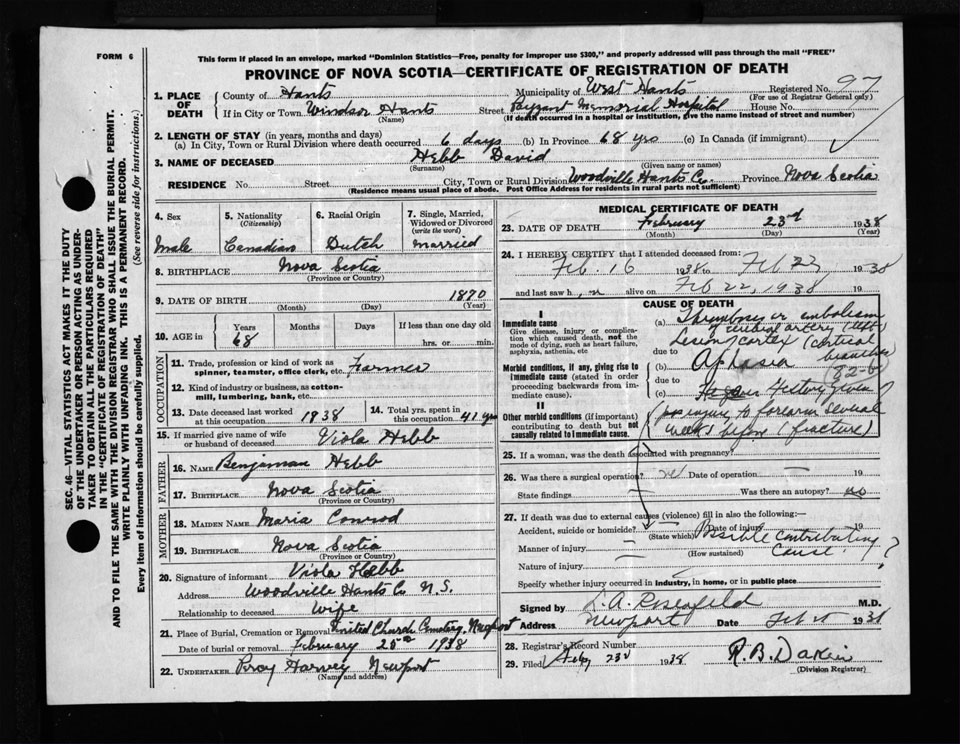 FORM 6
This form if placed in an envelope, marked "Dominion Statistics—Free, penalty for improper use $300," and properly addressed will pass through the mail "FREE"
PROVINCE OF NOVA SCOTIA—CERTIFICATE OF REGISTRATION OF DEATH
1. PLACE OF DEATH
County of Hants Municipality of West Hants Registered No. 97
(For use of Registrar General only)
If in City or Town Windsor Hants Street Payzant Memorial Hospital House No.
(Name) (If death occurred in a hospital or institution, give the name instead of street and number)
2. LENGTH OF STAY (in years, months and days)
(a) In City, Town or Rural Division where death occurred 6 days (b) In Province 68 yrs (c) In Canada (if immigrant)
3. NAME OF DECEASED Hebb David
(Surname) (Given name or names)
RESIDENCE No. Street City, Town or Rural Division Woodville Hants Co. Province Nova Scotia
(Residence means usual place of abode. Post Office Address for residents in rural parts not sufficient)
SEC. 46—VITAL STATISTICS ACT MAKES IT THE DUTY
OF THE UNDERTAKER OR PERSON ACTING AS UNDER-
TAKER TO OBTAIN ALL THE PARTICULARS REQUIRED
IN THE "CERTIFICATE OF REGISTRATION OF DEATH"
AND TO FILE THE SAME WITH THE DIVISION REGISTRAR WHO SHALL ISSUE THE BURIAL PERMIT.
WRITE PLAINLY WITH UNFADING INK. THIS IS A PERMANENT RECORD.
Every item of information should be carefully supplied. (See reverse side for instructions.)
4. Sex
Male
5. Nationality
(Citizenship)
Canadian
6. Racial Origin
Dutch
7. Single, Married,
Widowed or Divorced
(write the word)
Married
8. BIRTHPLACE Nova Scotia
(Province or Country)
9. DATE OF BIRTH 1870
(Month) (Day) (Year)
10. AGE in Years Months Days If less than one day old
68 hrs. or min.
OCCUPATION
11. Trade, profession or kind of work as
spinner, teamster, office clerk, etc. Farmer
12. Kind of industry or business, as cotton-
mill, lumbering, bank, etc.
13. Date deceased last worked
at this occupation 1938
14. Total yrs. spent in
this occupation 41 yrs
15. If married give name of wife
or husband of deceased Viola Hebb
FATHER
16. NAME Benjiman Hebb
17. BIRTHPLACE Nova Scotia
(Province or Country)
MOTHER
18. MAIDEN NAME Maria Conrod
19. BIRTHPLACE Nova Scotia
(Province or Country)
20. Signature of informant Viola Hebb
Address Woodville Hants Co N.S.
Relationship to deceased Wife
21. Place of Burial, Cremation or Removal United Church Cemetery, Newport
Date of burial or removal February 25th 1938
22. UNDERTAKER Percy Harvey Newport
(Name and address)
MEDICAL CERTIFICATE OF DEATH
23. DATE OF DEATH February 23rd 1938
(Month) (Day) (Year)
24. I HEREBY CERTIFY that I attended deceased from:
Feb. 16 1938 to Feb 22, 1938
and last saw h im alive on Feb 22, 1938 19
I
Immediate cause
Give disease, injury or complica-
tion which caused death, not the
mode of dying, such as heart failure,
asphyxia, asthenia, etc
Morbid conditions, if any, giving rise to
immediate cause (stated in order
proceeding backwards from im-
mediate cause).
II
Other morbid conditions (if important)
contributing to death but not
causally related to immediate cause.
CAUSE OF DEATH
(a) Thrombosis or embolism
of cerebral artery (left
Lesion cortex (cortical
branches
due to
(b) Aphasia 82-b
due to
(c) History given
injury to forearm several
weeks before (fracture)
25. If a woman, was the death associated with pregnancy?
26. Was there a surgical operation? no Date of operation —
State findings — Was there an autopsy? no
27. If death was due to external causes (violence) fill in also the following:—
Accident, suicide or homicide? Date of injury 19
(State which) Possible contributing
Manner of injury — cause?
(How sustained)
Nature of injury —
Specify whether injury occurred in industry, in home, or in public place
Signed by A. Rosenfeld M.D.
Address Newport Date Feb 25 1938
28. Registrar's Record Number
29. Filed Feby 23d 1938 R. B. Dakin
(Division Registrar)